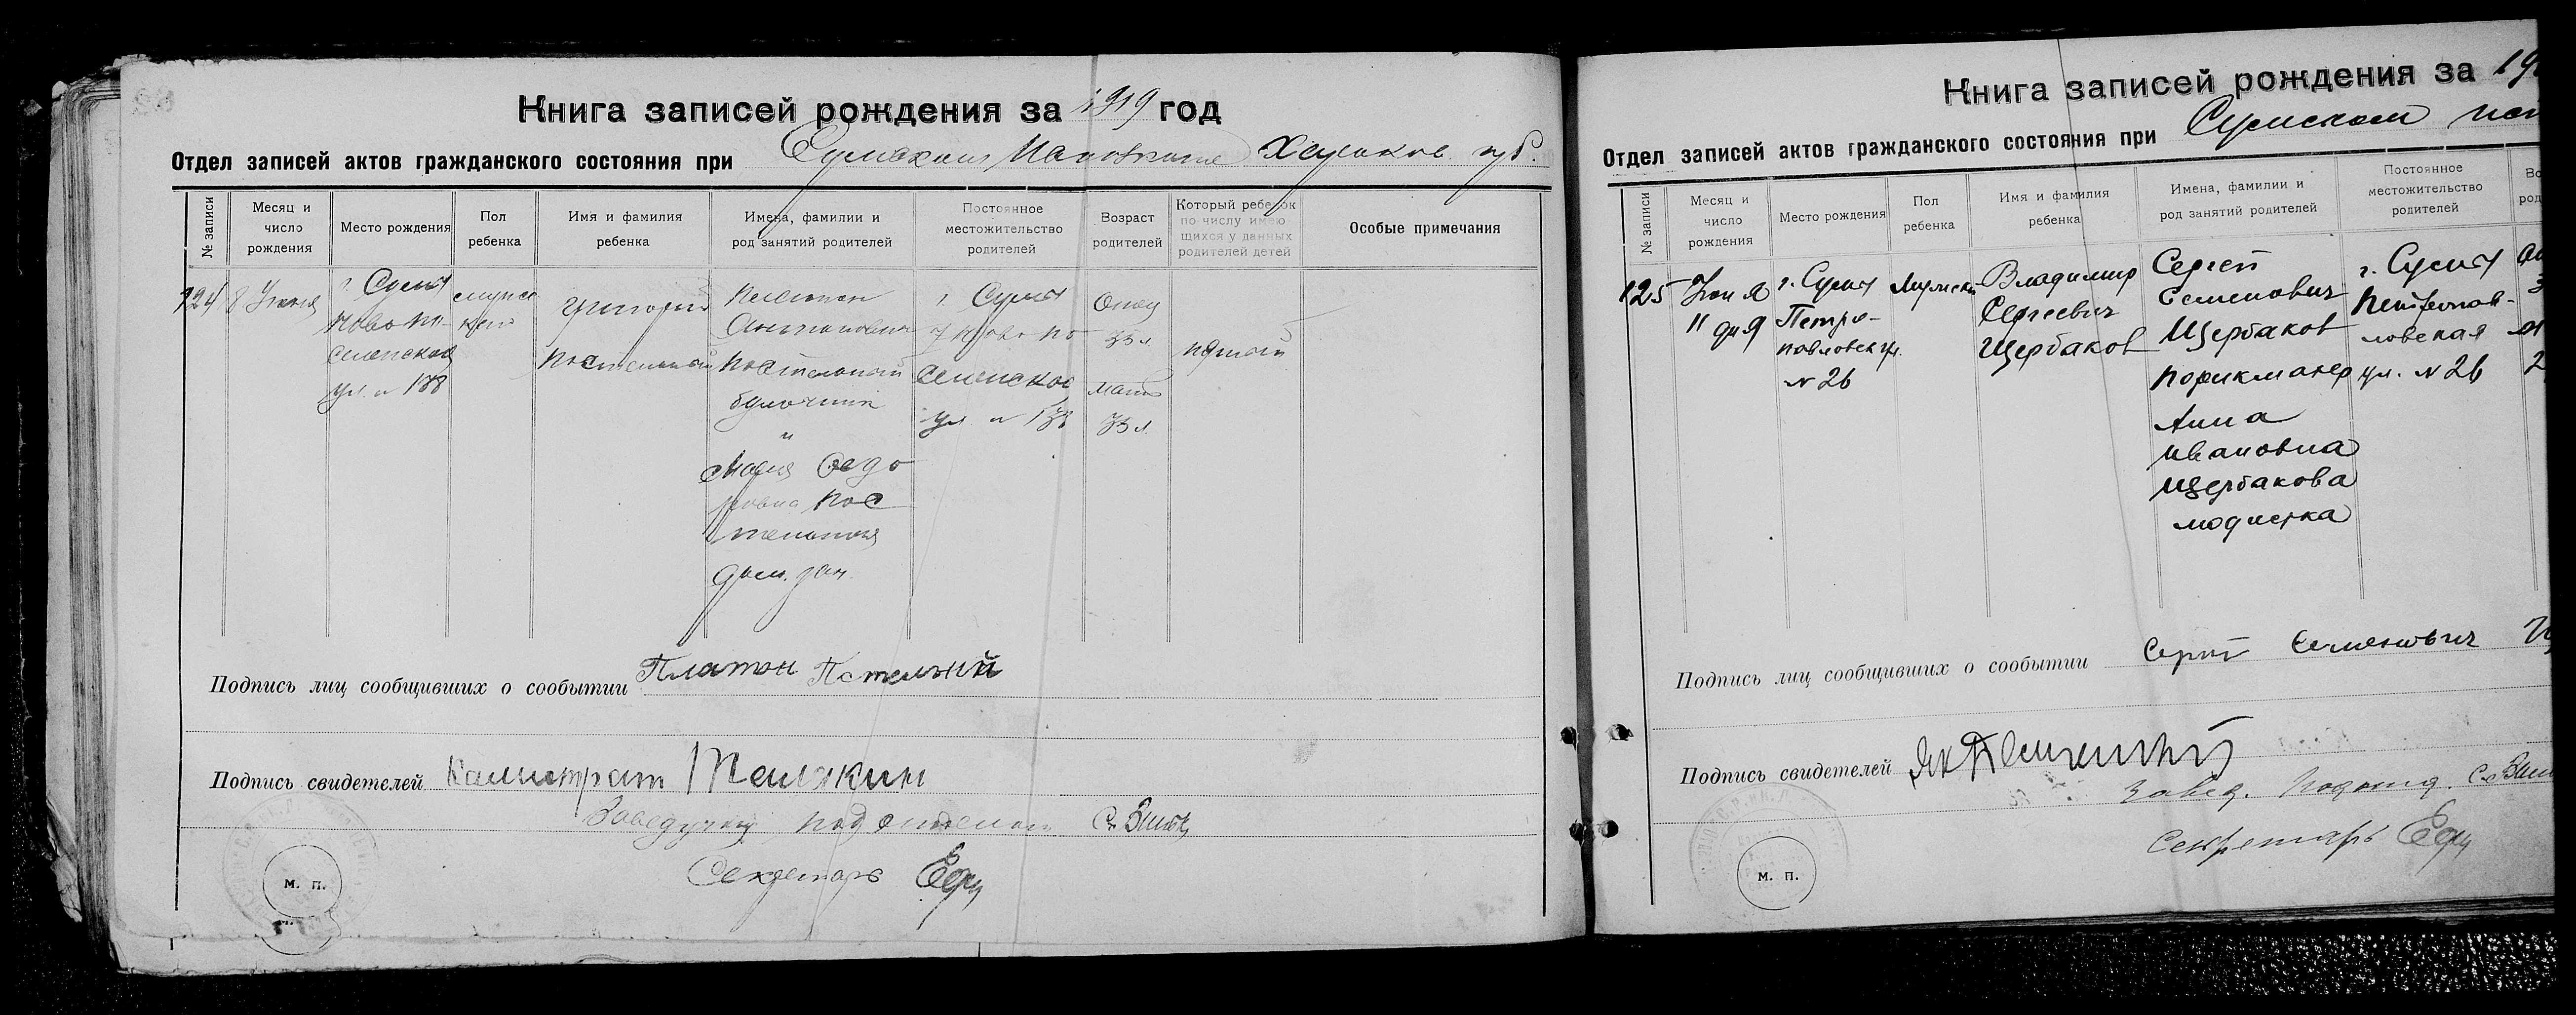 Книга записей рождения за 1919 год
Отдел записей актов гражданского состояния при Сумском Харьков. губ.
№ записи
Месяц и число рождения
Место рождения
Пол ребенка
Имя и фамилия ребенка
Имена, фамилии и род занятий родителей
Постоянное местожительство родителей
Возраст родителей
Который ребенок по числу имеющихся у данных родителей детей
Особые примечания
124
8 Июня
г. Сумы
Ново по-
селенская
ул. № 188
мужс
кой
Григорий
Постельный
Платон
Антонович
Постельный
булочник
и
Мария Федо
ровна Пос
тельная
дом. зан.
г. Сумы
Ново по
селенская
ул. № 188
Отец
35 л.
мать
35 л.
пятый
Подпись лиц сообщивших о сообытии Платон Постельний
Подпись свидетелей Калистрат
Заведующий подотделом
Секретарь
м. п.
Книга записей рождения за 19
Отдел записей актов гражданского состояния при Сумском
№ записи
Месяц и число рождения
Место рождения
Пол ребенка
Имя и фамилия ребенка
Имена, фамилии и род занятий родителей
Постоянное местожительство родителей
Во
род
125
Июня
11 дня
г. Сумы
Петро-
павловск ул.
№ 26
Мужской
Владимир
Сергеевич
Щербаков
Сергей
Семенович
Щербаков
парикмахер
Анна
Ивановна
Щербакова
модистка
г. Сумы
Петропав-
ловская
ул. № 26
Подпись лиц сообщивших о сообытии Сергей Семенович
Подпись свидетелей
Завед. Подотд.
Секретарь
м. п.